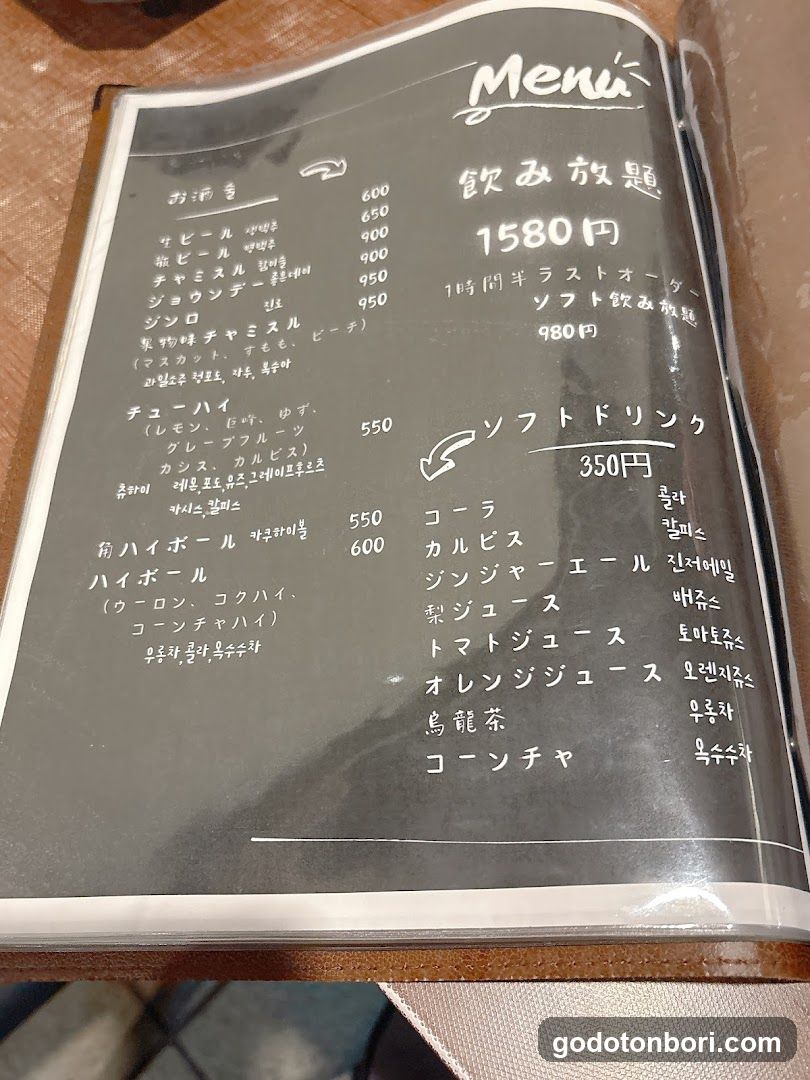 Menu
お酒
600
生ビール 생맥주
650
瓶ビール 병맥주
900
チャミスル 참이슬
900
ジョウンデー 좋은데이
950
ジンロ 진로
950
果物味チャミスル
(マスカット、すもも、ピーチ)
과일소주 청포도, 자두, 복숭아
チューハイ
550
(レモン、巨峰、ゆず、
グレープフルーツ
カシス、カルピス)
츄하이 레몬,포도,유즈,그레이프후르츠
카시스,칼피스
角ハイボール 카쿠하이볼 550
ハイボール 600
(ウーロン、コクハイ、
コーンチャハイ)
우롱차,콜라,옥수수차
飲み放題
1580円
1時間半ラストオーダー
ソフト飲み放題
980円
ソフトドリンク
350円
コーラ 콜라
カルピス 칼피스
ジンジャーエール 진저에일
梨ジュース 배쥬스
トマトジュース 토마토쥬스
オレンジジュース 오렌지쥬스
烏龍茶 우롱차
コーンチャ 옥수수차
godotonbori.com